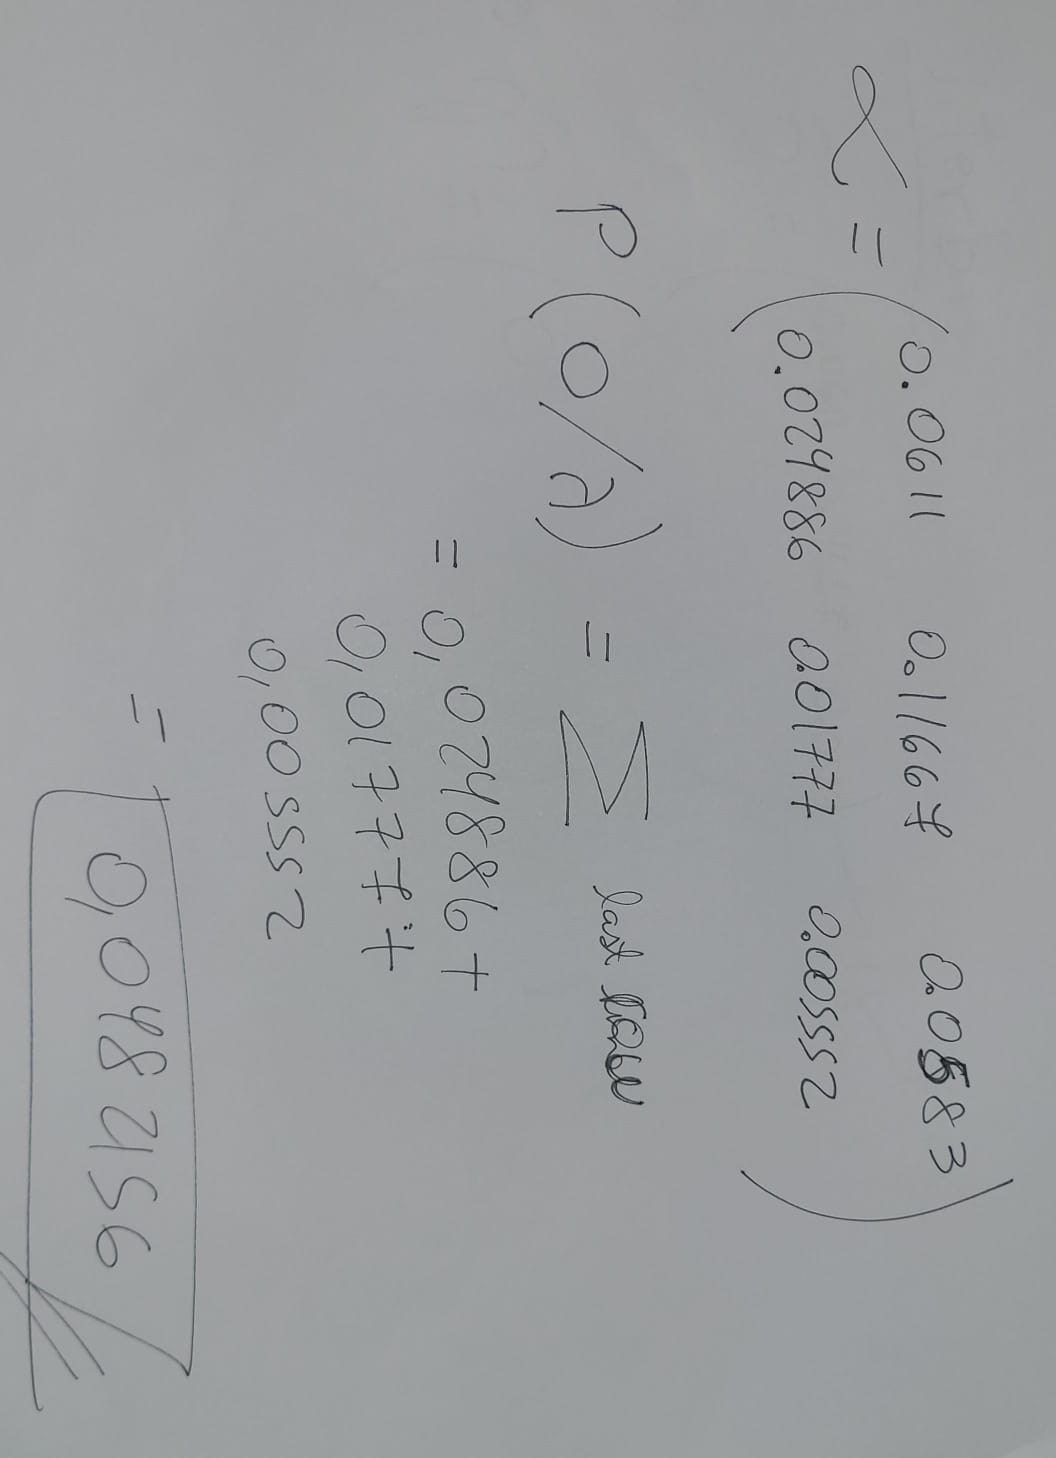 α = ( 0.0611 0.11667 0.0583
0.024886 0.01777 0.005552 )
P(O/λ) = Σ last
= 0,024886 +
0,01777 +
0,005552
= 0,0482156